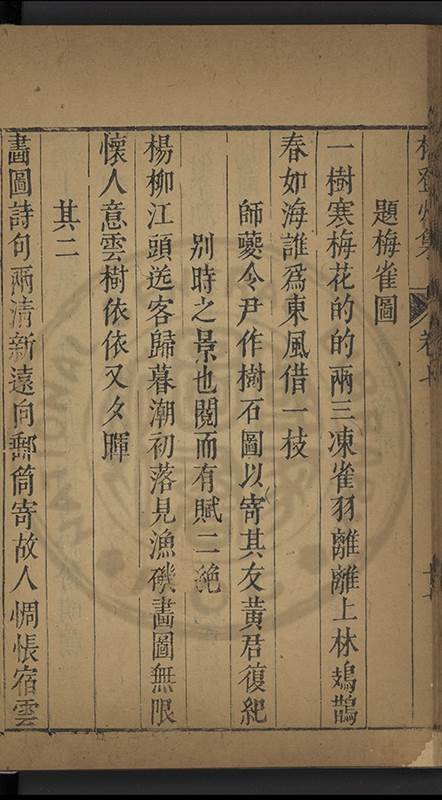 題梅雀圖
一樹寒梅花的的兩三凍雀羽離離上林鳷鵲
春如海誰爲東風借一枝
師夔令尹作樹石圖以寄其友黄君復紀
别時之景也閱而有賦二絶
楊柳江頭送客歸暮潮初落見漁磯畵圖無限
懷人意雲樹依依又夕暉
其二
畵圖詩句兩清新遠向郵筒寄故人惆悵宿雲